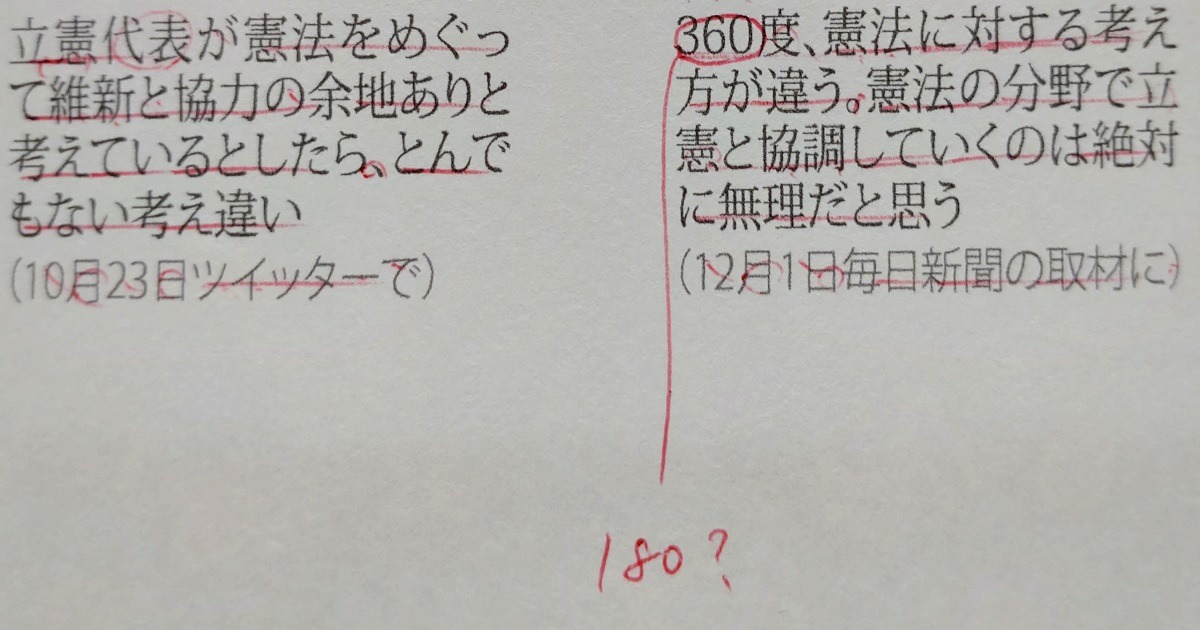 立憲代表が憲法をめぐっ
て維新と協力の余地ありと
考えているとしたら、とんで
もない考え違い
(10月23日ツイッターで)
360度、憲法に対する考え
方が違う。憲法の分野で立
憲と協調していくのは絶対
に無理だと思う
(12月1日毎日新聞の取材に)
180?